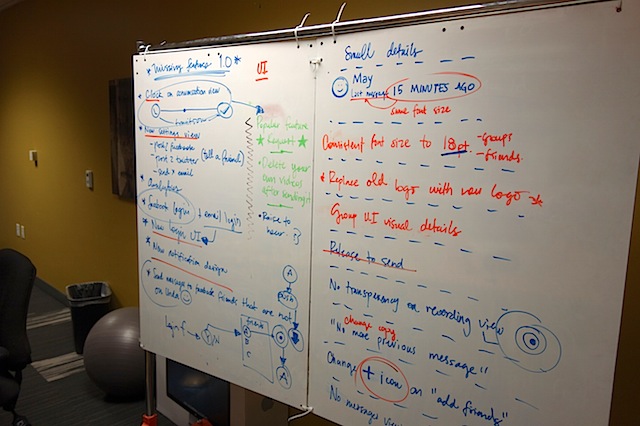 * Missing features 1.0 *
UI
* Clock on animation view
transition
* New settings view
- post 2 facebook
- post 2 twitter (tell a friend)
- post 2 email
* Analytics
* Facebook login + email login
* New Login UI
* New notification design
* Send message to facebook friends that are not
on
Login
Y/N
friends
A
B
C
A
push
A
Popular feature
★ Request ★
• Delete your
own videos
after sending it
• Raise to
hear.
Small details
May
Last message 15 MINUTES AGO
same font size
Consistent font size to 18pt. - groups
- friends.
* Replace old logo with new logo *
Group UI visual details
Release to send
No transparency on recording view
change copy
"No more previous message"
Change + icon on "add friends"
No message